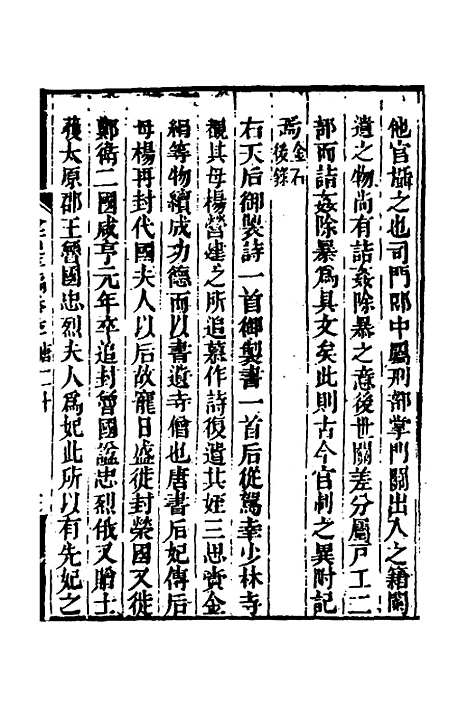 他官攝之也司門郎中屬刑部掌門關出入之籍闌
遺之物尚有詰姦除暴之意後世關差分屬戶工二
部而詰姦除暴為具文矣此則古今官制之異附記
焉金石後錄
右天后御製詩一首御製書一首后從駕幸少林寺
觀其母楊營建之所追慕作詩復遣其姪三思賫金
絹等物續成功德而以書遺寺僧也唐書后妃傳后
母楊再封代國夫人以后故寵日盛徙封榮國又徙
鄭衛二國咸亨元年卒追封魯國諡忠烈俄又贈士
彠太原郡王魯國忠烈夫人為妃此所以有先妃之